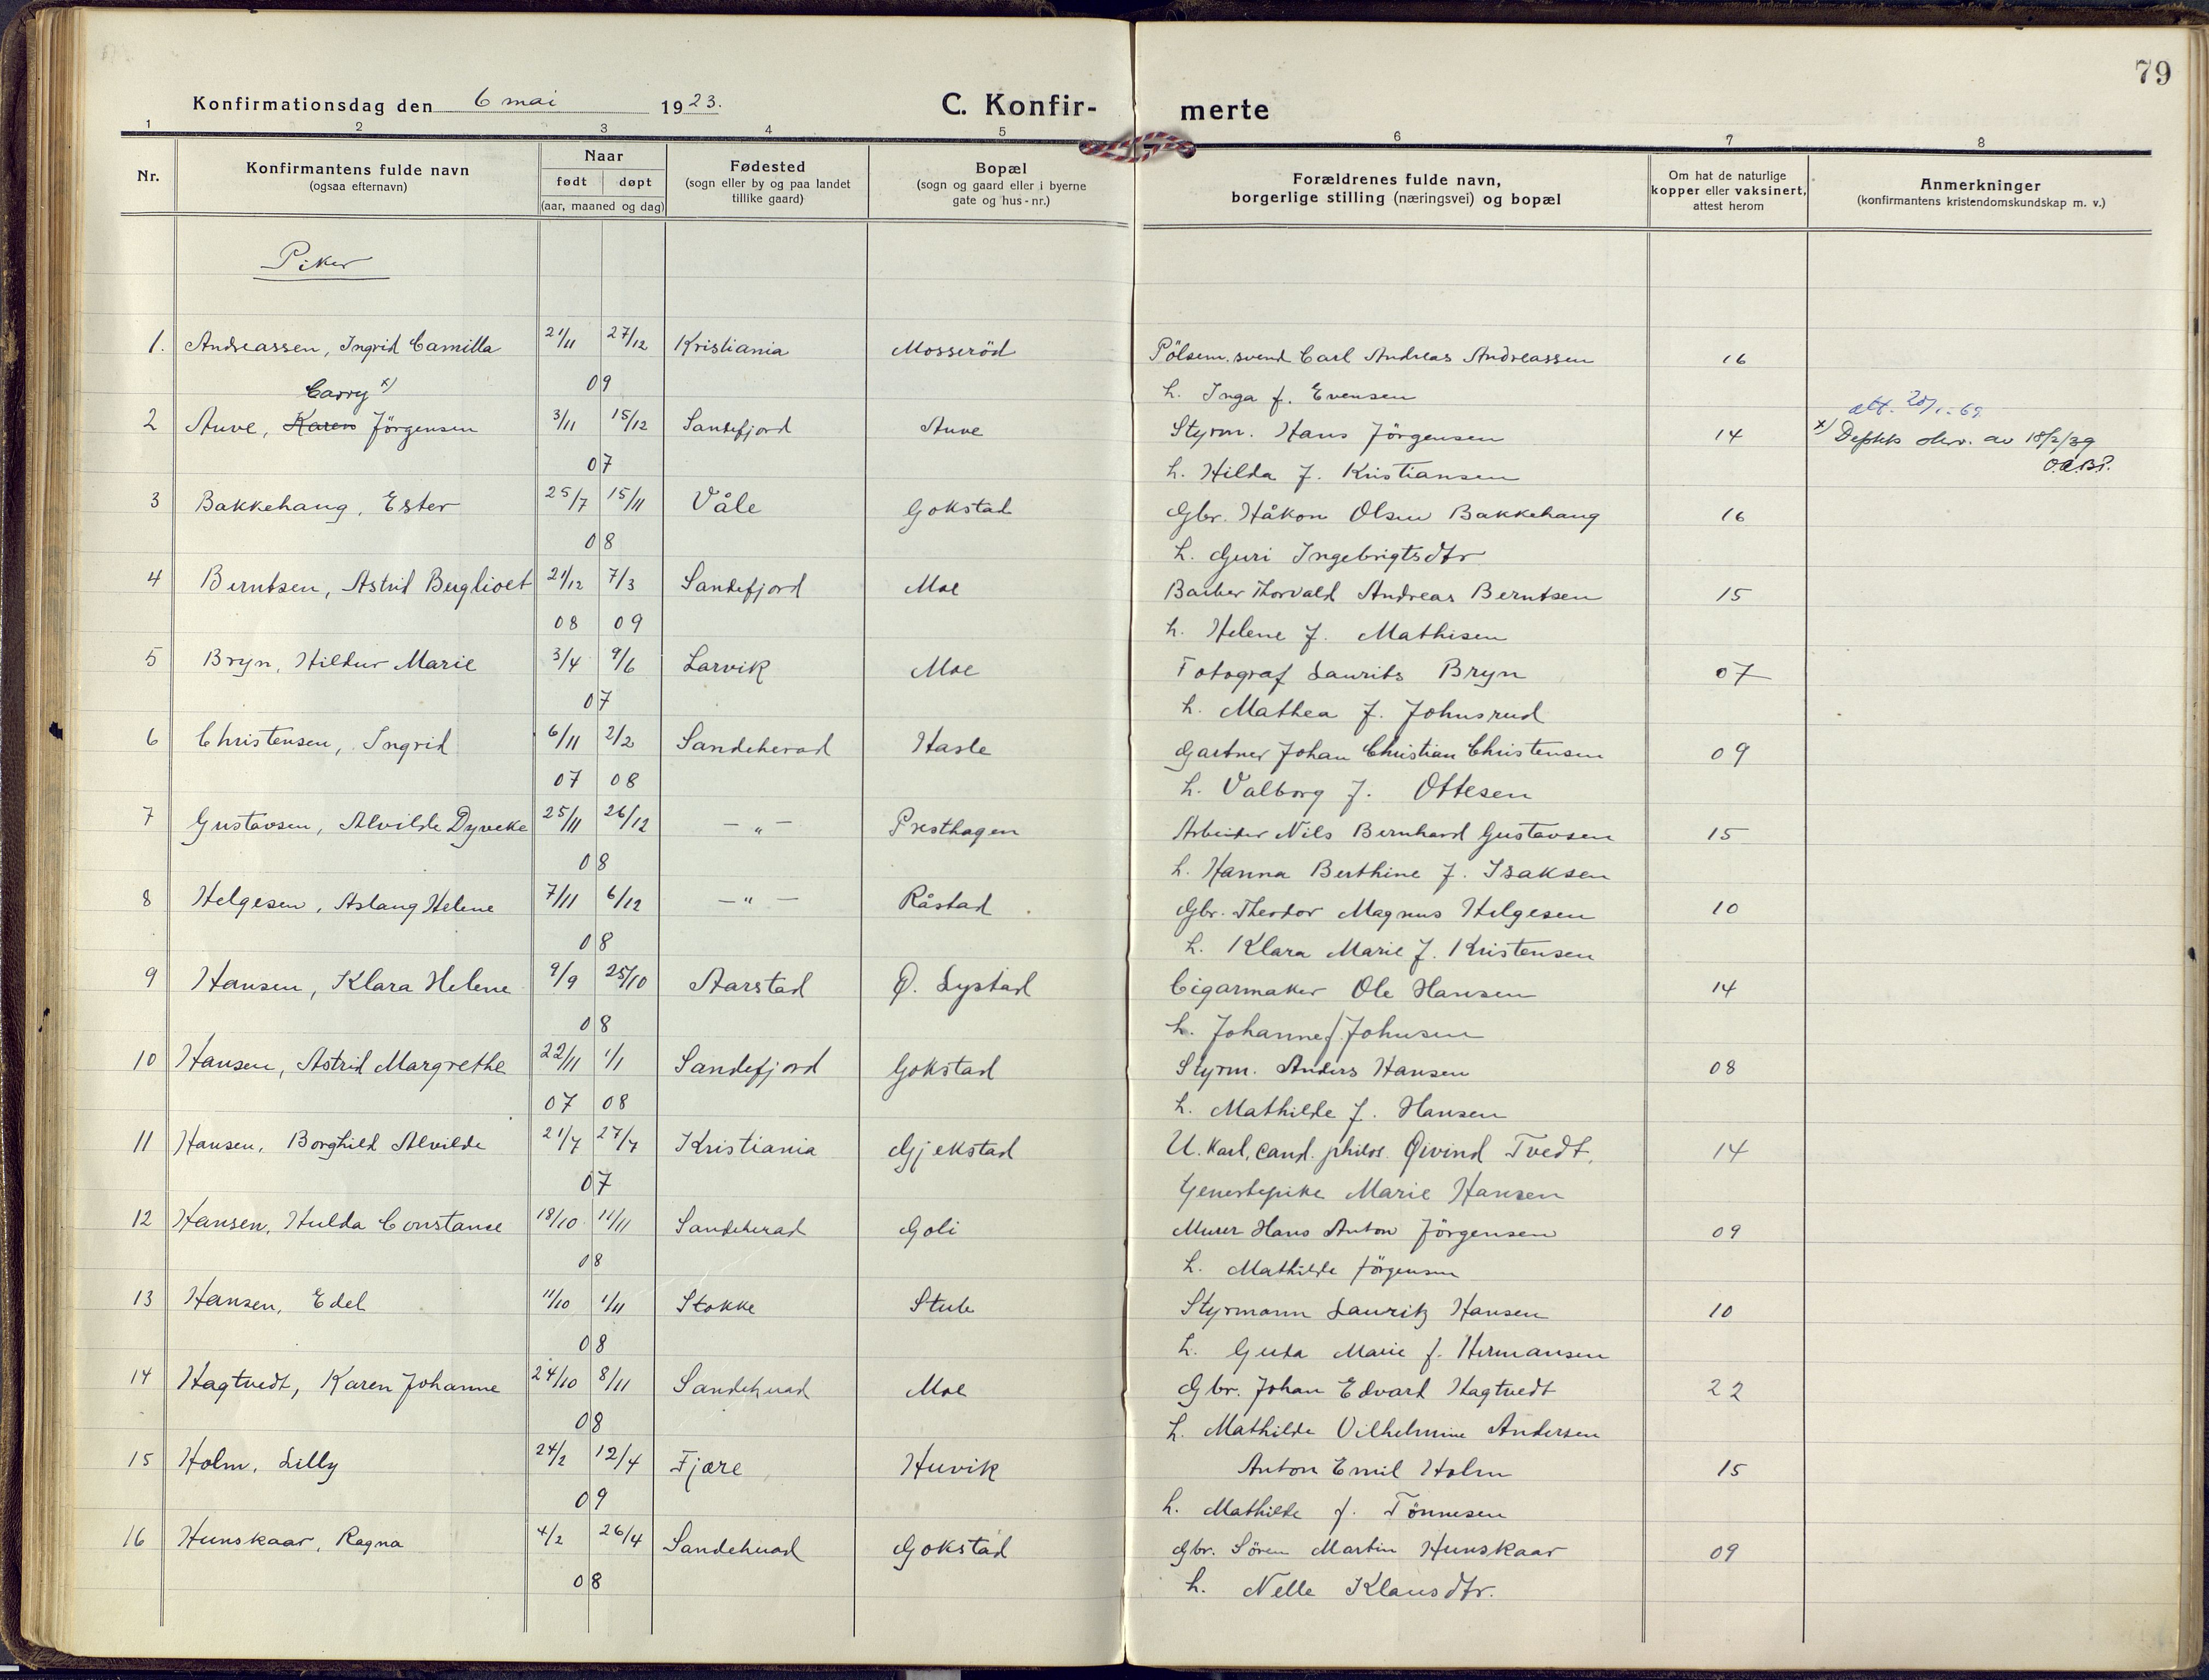 79
Konfirmationsdag den 6 mai 1923.
C. Konfir- merte
1 2 3 4 5 6 7 8
Nr.
Konfirmantens fulde navn
(ogsaa efternavn)
Naar
født døpt
(aar, maaned og dag)
Fødested
(sogn eller by og paa landet
tillike gaard)
Bopæl
(sogn og gaard eller i byerne
gate og hus-nr.)
Forældrenes fulde navn,
borgerlige stilling (næringsvei) og bopæl
Om hat de naturlige
kopper eller vaksinert,
attest herom
Anmerkninger
(konfirmantens kristendomskundskap m. v.)
Piker
1. Andreassen, Ingrid Camilla 21/11 27/12 Kristiania Mosseröd Pölsem. svend Carl Andreas Andreassen 16
09 h. Inga f. Evensen
Carry x)
att. 20/1-69
2 Auve, Karen Jörgensen 3/11 15/12 Sandefjord Auve Styrm. Hans Jörgensen 14 x) Depts skr. av 18/2/39
07 h. Hilda f. Kristiansen O.C.B.P.
3 Bakkehaug, Ester 25/7 15/11 Våle Gokstad Gbr. Håkon Olsen Bakkehaug 16
08 h. Guri Ingebrigtsdtr
4 Berntsen, Astrid Bergliot 21/12 7/3 Sandefjord Moe Barber Thorvald Andreas Berntsen 15
08 09 h. Helene f. Mathisen
5 Bryn, Hildur Marie 3/4 9/6 Larvik Moe Fotograf Laurits Bryn 07
07 h. Mathea f. Johnsrud
6 Christensen, Ingrid 6/11 2/2 Sandeherad Hasle Gartner Johan Christian Christensen 09
07 08 h. Valborg f. Ottesen
7 Gustavsen, Alvilde Dyveke 25/11 26/12 — " — Presthagen Arbeider Nils Bernhard Gustavsen 15
08 h. Hanna Berthine f. Isaksen
8 Helgesen, Aslaug Helene 7/11 6/12 — " — Råstad Gbr. Theodor Magnus Helgesen 10
08 h. Klara Marie f. Kristensen
9 Hansen, Klara Helene 9/9 25/10 Aarstad Ø. Lystad Cigarmaker Ole Hansen 14
08 h. Johanne f. Johnsen
10 Hansen, Astrid Margrethe 22/11 1/1 Sandefjord Gokstad Styrm. Anders Hansen 08
07 08 h. Mathilde f. Hansen
11 Hansen, Borghild Alvilde 21/7 27/7 Kristiania Gjekstad U. Karl, cand. philos. Øivind Tvedt, 14
07 Tjenestepike Marie Hansen
12 Hansen, Hulda Constanse 18/10 11/11 Sandeherad Goli Murer Hans Anton Jörgensen 09
08 h. Mathilde Jörgensen
13 Hansen, Edel 11/10 1/11 Stokke Stub Styrmann Lauritz Hansen 10
08 h. Guda Marie f. Hermansen
14 Hagtvedt, Karen Johanne 24/10 8/11 Sandeherad Moe Gbr. Johan Edvart Hagtvedt 22
08 h. Mathilde Vilhelmine Andersen
15 Holm, Lilly 24/2 12/4 Fjære Huvik Anton Emil Holm 15
09 h. Mathilde f. Tönnesen
16 Hunskaar, Ragna 4/2 26/4 Sandeherad Gokstad Gbr. Sören Martin Hunskaar 09
08 h. Nelle Klausdtr.